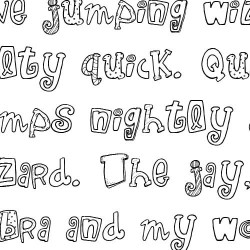 ve jumping wi
lty quick. Qu
mps nightly
zard. The jay,
Bra and my we